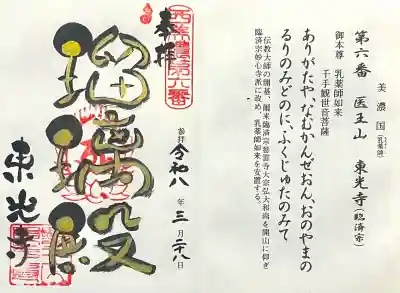 美濃国
第六番 医王山 東光寺(臨済宗)
(乳薬師)
御本尊 乳薬師如来
千手観世音菩薩
ありがたや、なむかんぜおん、おのやまの
るりのみどのに、ふくじゅたのみて
伝教大師の開基、爾来臨済宗慈雲寺大宗弘大和尚を開山に仰ぎ
臨済宗妙心寺派に改め、乳薬師如来を安置する。
奉拝
瑠璃殿
東光寺
参拝 令和八年三月二十八日